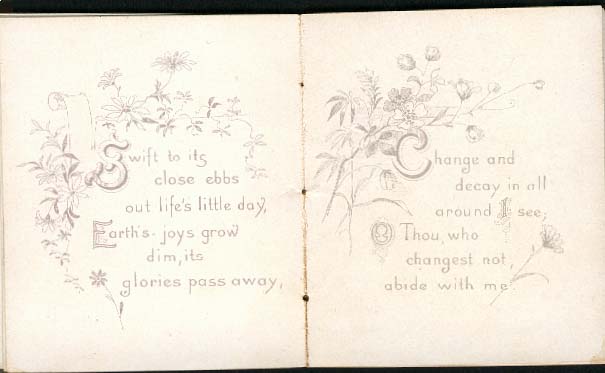 Swift to its
close ebbs
out life's little day,
Earth's joys grow
dim, its
glories pass away,
Change and
decay in all
around I see;
O Thou, who
changest not,
abide with me.